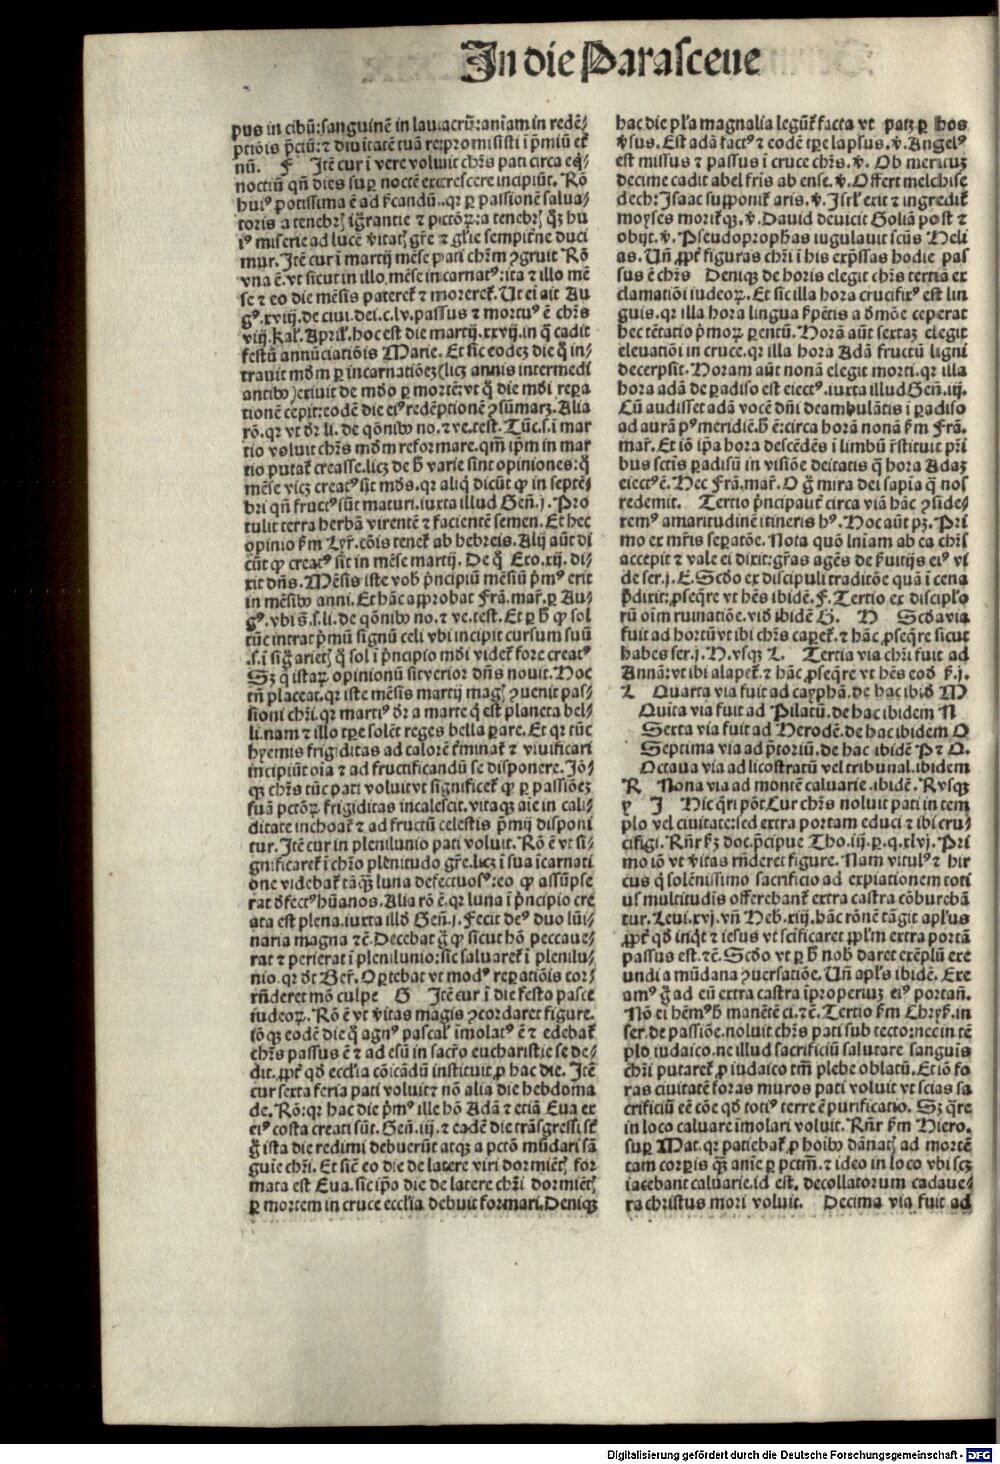 In die Parasceue
pus in cibũ: sanguinẽ in lauacrũ: aniam in redẽ/
ptiõis p̃ciũ: ⁊ diuitatẽ tuã repromisisti i p̃miũ etr̃
nũ. F Itẽ cur i vere voluit chr̃s pati circa eq̃/
noctiũ qñ dies sup̱ noctẽ excrescere incipiũt. Rõ
huiꝰ potissima ẽ ad p̃candũ.. qꝛ ꝑ passionẽ salua/
toris a tenebrꝭ ig̃rantie ⁊ pctõꝝ: a tenebrꝭ q̃ꝫ hu
iꝰ miserie ad lucẽ v̾itatꝭ gr̃e ⁊ gl̃ie sempit̾ne duci
mur. Itẽ cur i martij mẽse pati chr̃m ꝯgruit Rõ
vna ẽ. vt sicut in illo mẽse incarnatꝰ: ita ⁊ illo mẽ
se ⁊ eo die mẽsis pateret̃ ⁊ moreret̃. Ut ei ait Au
gꝰ. xviij. de ciui. dei. c. lv. passus ⁊ mortuꝰ ẽ chr̃s
viij. kal̃. April̃. hoc est die martij. xxvij. in q̃ cadit
festũ annũciatiõis Marie. Et sic eodeꝫ die q̃ in/
trauit mũdm ꝑ incarnatiõeꝫ (licꝫ annis intermedi
antibꝰ) exiuit de mũdo ꝑ mortẽ: vt q̃ die mũdi repa
tionẽ cepit: eodẽ die eiꝰ redẽptionẽ ꝯsũmaret. Alia
rõ. qꝛ vt dr̃ li. de q̃onibꝰ no. ⁊ ve. test. Tũc. s. i mar
tio voluit chr̃s mũdm reformare. qm̃ ip̃m in mar
tio putat̃ creasse. licꝫ de h̃ varie sint opiniones: q̃
mẽse vicꝫ creatꝰ sit mũds. qꝛ aliq̃ dicũt ꝙ in septẽ/
bri qñ fructꝰ sũt maturi. iuxta illud Gen̄. j. Pro
tulit terra herbã virentẽ ⁊ facientẽ semen. Et hec
opinio s̃m Lyr̃. cõis tenet̃ ab hebreis. Alij aũt di
cũt ꝙ creatꝰ sit in mẽse martij. De q̃ Exo. xij. di/
xit dñs. Mẽsis iste vob̃ p̃ncipiũ mẽsiũ p̃mꝰ erit
in mẽsibꝰ anni. Et hãc approbat Frã. mar̃. ꝑ Au/
gꝰ. vbi s̃. s. li. de q̃onibꝰ no. ⁊ ve. test. Et ꝑ h̃ ꝙ sol
tũc intrat p̃mũ signũ celi vbi incipit cursum suũ
.s. i sig̃ arietꝭ q̃ sol i p̃ncipio mũdi videt̃ fore creatꝰ
Sꝫ q̃ istaꝝ opinionũ sit verior dñs nouit. Hoc
tñ placeat. qꝛ iste mẽsis martij magꝭ ꝯuenit pas/
sioni chr̃i. qꝛ martiꝰ dr̃ a marte q̃ est planeta bel/
li. nam ⁊ illo tꝑe solẽt reges bella parare. Et qꝛ tũc
hyemis frigiditas ad calorẽ t̾minat̃ ⁊ viuificari
incipiũt oĩa ⁊ ad fructificandũ se disponere. Iõ/
qꝫ chr̃s tũc pati voluit vt significet̃ ꝙ ꝑ passiõeꝫ
suã pctõꝝ frigiditas incalescit. vitaqꝫ aĩe in cali/
ditate inchoat̃ ⁊ ad fructũ celestis p̃mij disponi
tur. Itẽ cur in plenilunio pati voluit. Rõ ẽ vt si/
gnificaret̃ i chr̃o plenitudo gr̃e. licꝫ i sua icarnati
one videbat̃ tãqꝫ luna defectuosꝰ: eo ꝙ assũpse
rat defectꝰ hũanos. Alia rõ ẽ. qꝛ luna i p̃ncipio cre
ata est plena. iuxta illd̾ Gen̄. j. Fecit deꝰ duo lũi/
naria magna ⁊c̃. Decebat g̃ ꝙ sicut hõ peccaue/
rat ⁊ perierat i plenilunio: sic saluaret̃ i plenilu/
nio. qꝛ dt Ber̃. Oportebat vt modꝰ repatiõis cor/
rñderet mõ culpe G Itẽ cur i die festo pasce
iudeoꝝ. Rõ ẽ vt v̾itas magis ꝯcordaret figure.
iõqꝫ eodẽ die q̃ agnꝰ pascal̃ imolatꝰ ẽ ⁊ edebat̃
chr̃s passus ẽ ⁊ ad esũ in sacr̃o eucharistie se de/
dit. ꝓpt̾ qd̾ eccl̃ia cõicãdũ instituit ꝓ hac die. Itẽ
cur sexta feria pati voluit ⁊ nõ alia die hebdoma
de. Rõ: qꝛ hac die p̃mꝰ ille hõ Adã ⁊ etiã Eua ex
eiꝰ costa creati sũt. Gen̄. iij. ⁊ eadẽ die trãsgressi st̃
g̃ ista die redimi debuerũt atqꝫ a pctõ mũdari sã
guie chr̃i. Et sicẽ eo die de latere viri dormiẽtꝭ for
mata est Eua. sic ip̃o die de latere chr̃i dormiẽtꝭ
ꝑ mortem in cruce eccl̃ia debuit formari. Deniqꝫ
hac die pl̃a magnalia legũt̃ facta vt patꝫ ꝑ hos
v̾sus. Est adã factꝰ ⁊ eodẽ tꝑe lapsus. v̾. Angelꝰ
est missus ⁊ passus i cruce chr̃s. v̾. Ob meritũ
decime cadit abel fr̃is ab ense. v̾. Offert melchise
dech: Isaac supponit̃ aris. v̾. Isrl̃ exit ⁊ ingredit̃
moyses morit̃qꝫ. v̾. Dauid deuicit Goliã post ⁊
obijt. v̾. Pseudoprophas iugulauit scũs Heli
as. Uñ ꝓpt̾ figuras chr̃i i his exp̃ssas hodie pas
sus ẽ chr̃s Deniqꝫ de horis elegit chr̃s tertiã ex
clamatiõi iudeoꝝ. Et sic illa hora crucifixꝰ est lin
guis. qꝛ illa hora lingua s̾pẽtis a dr̃mõe ceperat
hec tẽtatio p̃moꝝ parentũ. Horã aũt sextaꝫ elegit
eleuatiõi in cruce. qꝛ illa hora Adã fructũ ligni
decerpsit. Horam aũt nonã elegit morti. qꝛ illa
hora adã de ꝑadiso est eiectꝰ. iuxta illud Gen̄. iij.
Cũ audisset adã vocẽ dñi deambulãtis i ꝑadiso
ad aurã pꝰ meridiẽ. h̃ ẽ: circa horã nonã s̃m Frã.
mar̃. Et iõ ip̃a hora descẽdẽs i limbũ r̃stituit pr̃i
bus sctĩs ꝑadisũ in visiõe deitatis q̃ hora Adaꝫ
eiectꝰ ẽ. Hec Frã. mar̃. O q̃ mira dei sapĩa q̃ nos
redemit. Tertio p̃ncipaut̾ circa viã hãc ꝯside/
remꝰ amaritudinẽ itineris hꝰ. Hoc aũt pꝫ. Pri
mo ex mr̃is seꝑatõe. Nota quõ lniam ab ea chr̃s
accepit ⁊ vale ei dixit: gr̃as agẽs de s̾uitijs eiꝰ vi
de ser. j. E. Scd̾o ex discipuli traditõe quã i cena
p̃dixit: ꝓseq̃re vt hẽs ibidẽ. F. Tertio ex disciplo
rũ oĩm ruinatiõe. vid̾ ibidẽ G. H Scd̾a via
fuit ad hortũ vt ibi chr̃s caperet̃. ⁊ hãc ꝓseq̃re sicut
habes ser. j. H. vsqꝫ L. Tertia via chr̃i fuit ad
Annã: vt ibi alapet̃. ⁊ hãc ꝓseq̃re vt hẽs eod̾ s̾. j.
L Quarta via fuit ad cayphã. de hac ibid̾ M
Quita via fuit ad Pilatũ. de hac ibidem N
Sexta via fuit ad Herodẽ. de hac ibidem O
Septima via ad p̃toriũ. de hac ibidẽ P ⁊ Q.
Octaua via ad licostratũ vel tribunal. ibidem
R Nona via ad montẽ caluarie. ibidẽ. R vsqꝫ
y I Hic q̃ri põt Cur chr̃s noluit pati in tem
plo vel ciuitate: sed extra portam educi ⁊ ibi cru/
cifigi. Rñr̃ s̾ꝫ doc. p̃cipue Tho. iij. p. q. xlvj. Pri
mo iõ vt v̾itas rñderet figure. Nam vitulꝰ ⁊ hir
cus q̃ solẽnissimo sacrificio ad expiationem toti
us multitudis offerebant̃ extra castra cõburebã
tur. Leui. xvj. vñ Heb. xiij. hãc rõnẽ tãgit apl̃us
ꝓpt̾ qd̾ inq̃t ⁊ iesus vt scificaret ppl̃m extra portã
passus est. ⁊c̃. Scd̾o vt ꝑ h̃ nob̃ daret exẽplũ exe
undi a mũdana ꝯuersatiõe. Uñ apl̃s ibidẽ. Exe
amꝰ g̃ ad eũ extra castra iproperiuꝫ eiꝰ portan̄.
Nõ ei hẽmꝰ h̃ manẽtẽ ci. ⁊c̃. Tertio s̃m Chryst̃. in
ser. de passiõe. noluit chr̃s pati sub tecto: nec in tẽ
plo iudaico. ne illud sacrificiũ salutare sanguis
chr̃i putaret̃ ꝓ iudaico tm̃ plebe oblatũ. Et iõ fo
ras ciuitatẽ foras muros pati voluit vt scias sa
crificiũ eẽ cõe qd̾ totiꝰ terre ẽ purificatio. Sꝫ q̃re
in loco caluarie imolari voluit. Rñr̃ s̃m Hiero.
suꝑ Mat. qꝛ patiebat̃ ꝓ hoibꝰ dãnatꝭ ad mortẽ
tam corpis q̃ꝫ anie ꝑ pctm̃. ⁊ ideo in loco vbi scꝫ
iacebant caluarie. id est. decollatorum cadaue/
ra christus mori voluit. Decima via fuit ad
Digitalisierung gefördert durch die Deutsche Forschungsgemeinschaft - DFG